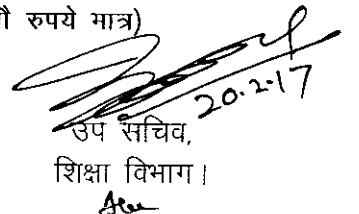 रुपये मात्र)
20.2.17
उप सचिव,
शिक्षा विभाग।